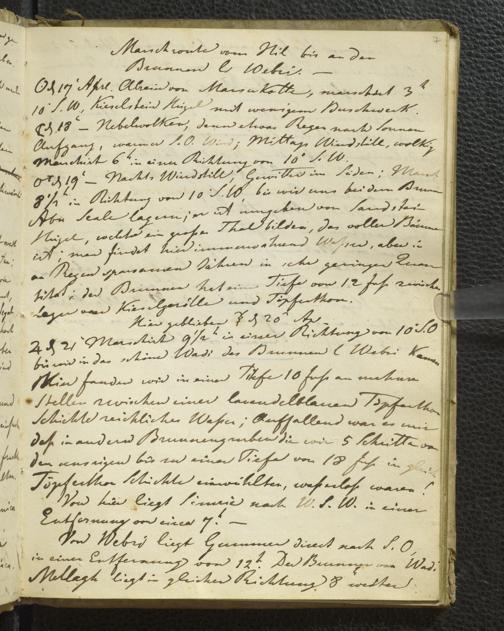 Marschroute vom Nil bis an den
Brunnen El Webri. —
17t April. Abend von marschirt 3 h
10° S.W. Kieselstein Hügel mit wenigem Buschwerk.
18t — Nebelwolken, dann etwas Regen nach Sonnen
Aufgang, warmer S.O. Wind; Mittags Windstill, wolkig
Marschirt 6 h in einer Richtung von 10° S.W.
19t — Nachts Windstill, Gewitter im Süden;
8 1/2 h in Richtung von 10° S.W. bis wir uns bei dem Brunn
Abu Seale lagern; er ist umgeben von Sandstein
Hügel, welche ein großes Thal bilden, das voller Bäume
ist, man findet hier immerwährend Wasser, aber in
an Regen sparsamen Jahren in sehr geringer Quan
tität; der Brunnen hat eine Tiefe von 12 fuß zwischen
Lagen von Kieselgerölle und Töpferthon.
Hier geblieben d 20t Ap.
d 21t Marschirt 9 1/2 h in einer Richtung von 10° S.O
bis wir in das schöne Wadi des Brunnen El Webri kamen
Hier fanden wir in einer Tiefe 10 fuß an mehrere
Stellen zwischen einer lavendelblauen Töpferthon
Schichte reichliches Wasser; Auffallend war es mir
daß in andern Brunnengruben die wir 5 Schritte von
den unsrigen bis zu einer Tiefe von 18 fuß in gleiche
Töpferthon Schichte einwühlten, wasserlos waren!
Von hier liegt Simrie nach W.S.W. in einer
Entfernung von circa 7 h. —
Von Webri liegt Gummer direct nach S.O,
in einer Entfernung von 12 h. Der Brunnen von Wadi
Mellagh liegt in gleicher Richtung 8 weiter